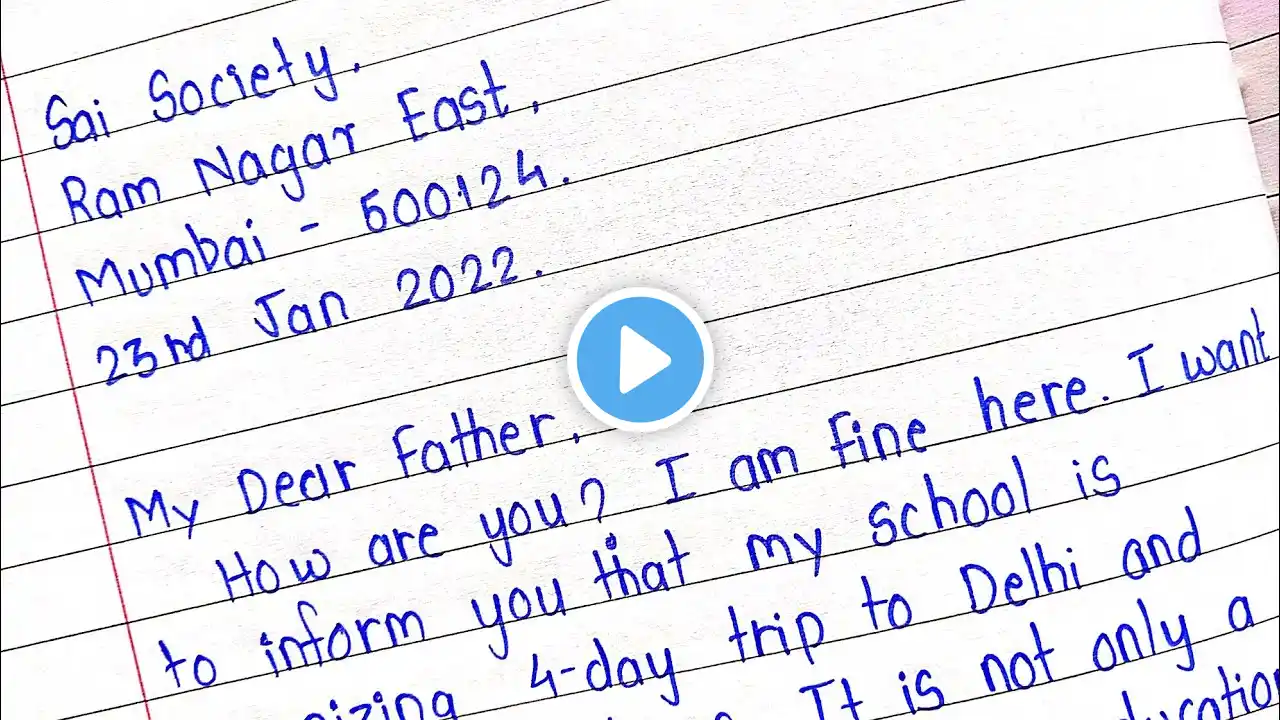 Sai Society.
Ram Nagar East,
Mumbai - 500124.
23rd Jan 2022.
My Dear Father,
How are you? I am fine here. I want
to inform you that my school is
4-day trip to Delhi and
It is not only a